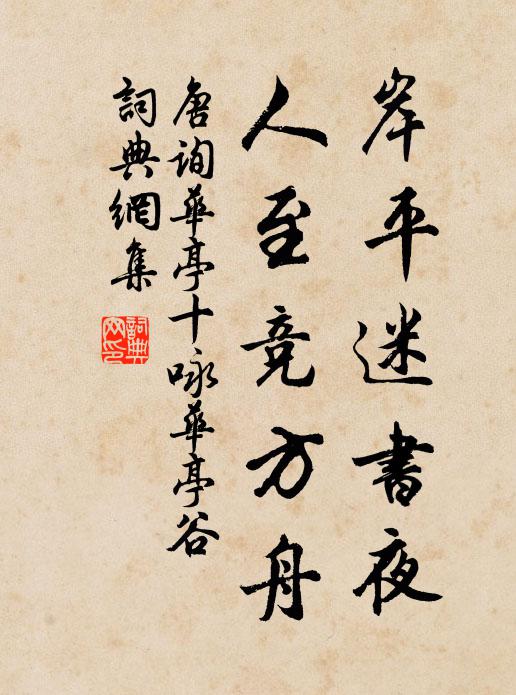 岸平迷書夜
人至竞方舟
唐詢華亭十咏華亭谷
詞典網集
詞典
网印